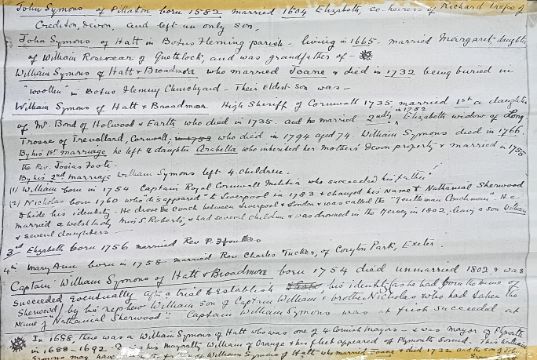 John Symons of Pilaton born 1582 married 1604 Elizabeth, co-heiress of Richard of
Crediton, Devon, and left an only son,
John Symons of Hatt in Botus Fleming parish - living in 1665. married Margaret daughter
of William Roscorear of and was grandfather of -
William Symons of Hatt & Broadmore who married Joane & died in 1732 being buried in
"woollen" in Botus Fleming Churchyard - Their eldest son was -
William Symons of Hatt & Broadmoor. High Sheriff of Cornwall 1735. married 1st a daughter
of Mr Bond of Holwood & Earth who died in 1735. and he married 2ndly in 1752 Elizabeth widow of Long
of Trevollard, Cornwall, who died in 1794 aged 74. William Symons died in 1766.
By his 1st marriage he left a daughter who inherited her mother's Devon property & married in
the Rev. Josias Foote.
By his 2nd marriage William Symons left 4 children.
(1) William born in 1754 Captain Royal Cornwall Militia who succeeded his father
(2) Nicholas born 1760 who disappeared to Liverpool in 1783 & changed his Name to Nathanial Sherwood
to hide his identity. He drove the Coach between Liverpool & London & was called the "Gentleman Coachman". He
married a Welsh lady Roberts, & had several children & was drowned in the Mersey in 1802, leaving a son William
& several daughters -
3rd Elizabeth born 1756 married Rev P.
4th Mary Anne born in 1758 married Rev. Charles Tucker, of Park, Exeter.
Captain William Symons of Hatt & Broadmoor born 1754 died unmarried 1802 & was
succeeded eventually after a trial to establish his identity (as he had the name of
Sherwood) by his nephew William son of Captain William's brother Nicholas who had taken the
Name of Nathanial Sherwood - Captain William Symons was at first succeeded at
In 1688 there was a William Symons of Hatt who was one of 4 Cornish Mayors - & was Mayor of Plymouth
in 1688-1692. In his Mayoralty William of Orange & his fleet appeared off Plymouth Sound.
may have been William Symons of Hatt who married Joane & died 1732